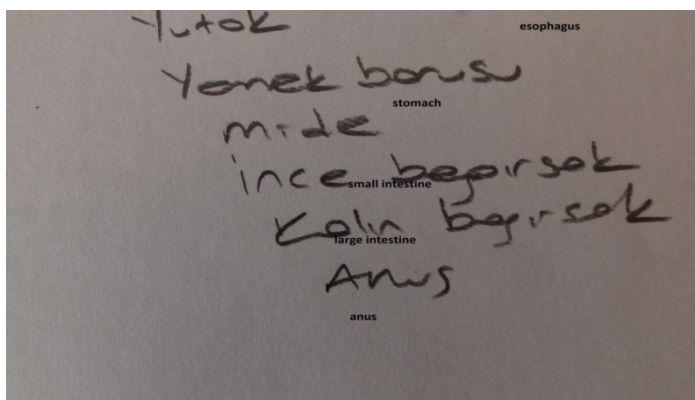 Yutak
esophagus
Yemek borusu
stomach
mide
ince bağırsak
small intestine
Kalın bağırsak
large intestine
Anus
anus